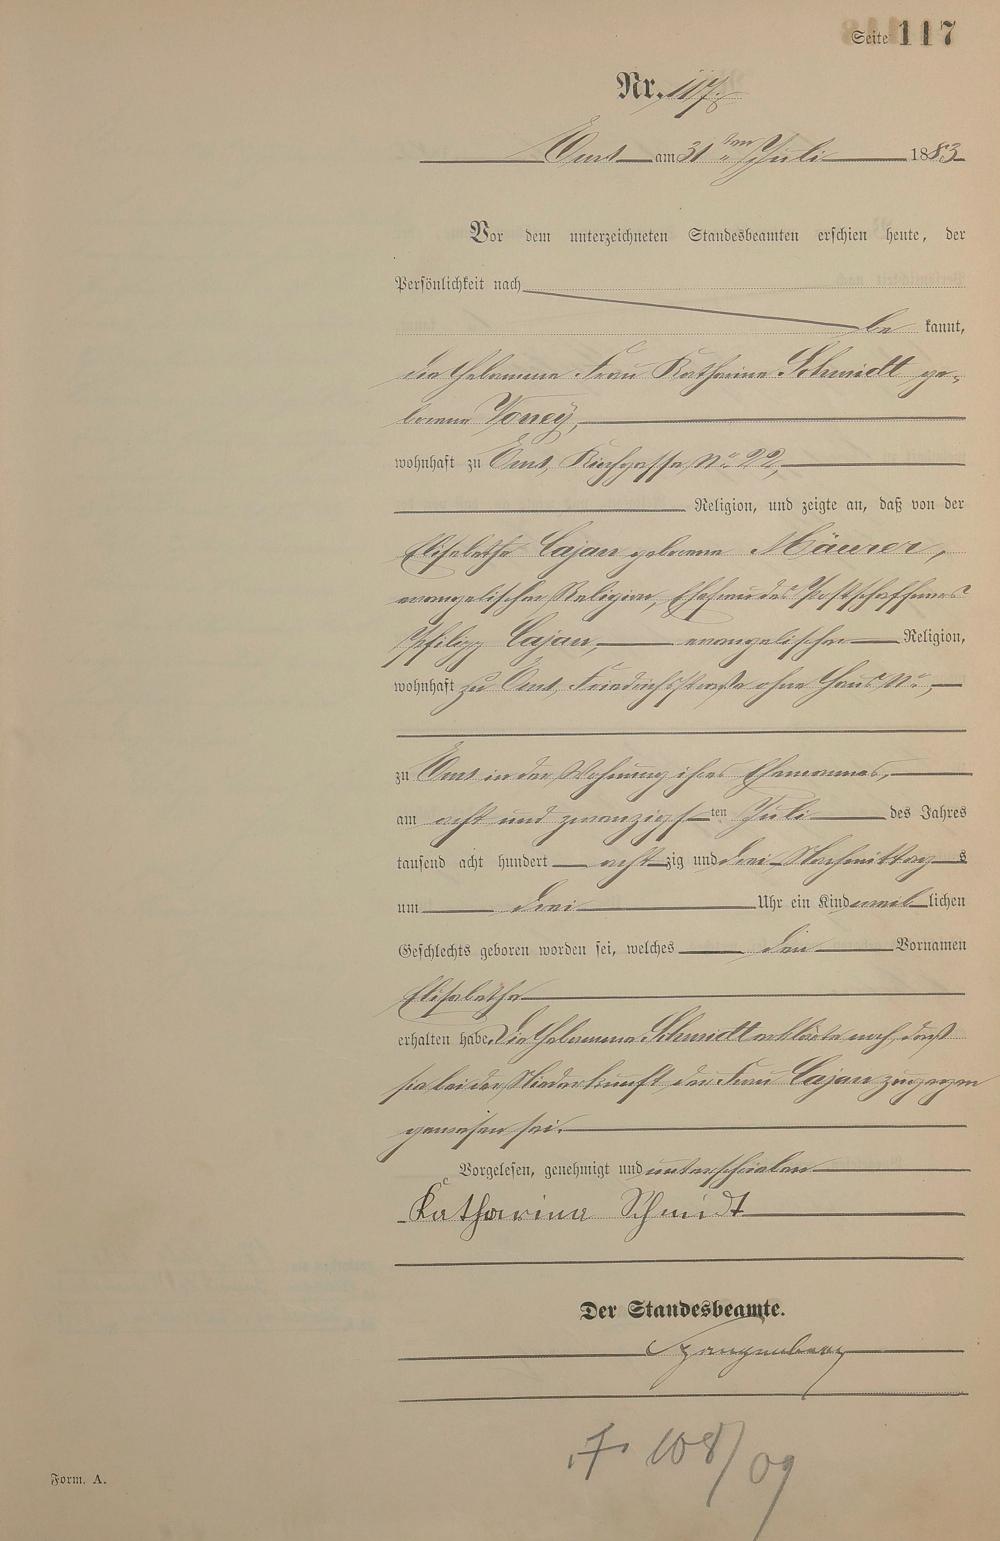 Seite 117
Nr. 117.
Ems am 31ten Juli 1883
Vor dem unterzeichneten Standesbeamten erschien heute, der
Persönlichkeit nach
be kannt,
die Hebamme Frau Katharina Schmidt ge-
borene
wohnhaft zu Ems, Kirchgasse No 22,
Religion, und zeigte an, daß von der
Elisabetha Cajan geborene Mäurer,
evangelischer Religion, Ehefrau des Postschaffners
Philipp Cajan, evangelischer Religion,
wohnhaft zu Ems, Friedrichsstraße ohne Haus No,
zu Ems in der Wohnung ihres Ehemannes,
am acht und zwanzigsten Juli des Jahres
tausend acht hundert acht zig und drei Nachmittags
um drei Uhr ein Kind weiblichen
Geschlechts geboren worden sei, welches den Vornamen
Elisabetha
erhalten habe. Die Hebamme Schmidt erklärte noch, daß
sie bei der Niederkunft der Frau Cajan zugegen
gewesen sei.
Vorgelesen, genehmigt und unterschrieben
Katharina Schmidt
Der Standesbeamte.
Spangenberg
108/09
Form. A.